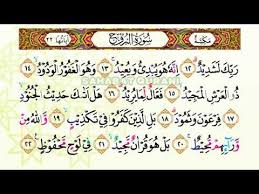 مكية سورة البروج آياتها ٢٢
رَبِّكَ لَشَدِيدٌ ١٢ إِنَّهُ هُوَ يُبْدِئُ وَيُعِيدُ ١٣ وَهُوَ الْغَفُورُ الْوَدُودُ ١٤
ذُو الْعَرْشِ الْمَجِيدُ ١٥ فَعَّالٌ لِمَا يُرِيدُ ١٦ هَلْ أَتَاكَ حَدِيثُ الْجُنُودِ
١٧ فِرْعَوْنَ وَثَمُودَ ١٨ بَلِ الَّذِينَ كَفَرُوا فِي تَكْذِيبٍ ١٩ وَاللَّهُ مِنْ
وَرَائِهِمْ مُحِيطٌ ٢٠ بَلْ هُوَ قُرْآنٌ مَجِيدٌ ٢١ فِي لَوْحٍ مَحْفُوظٍ ٢٢